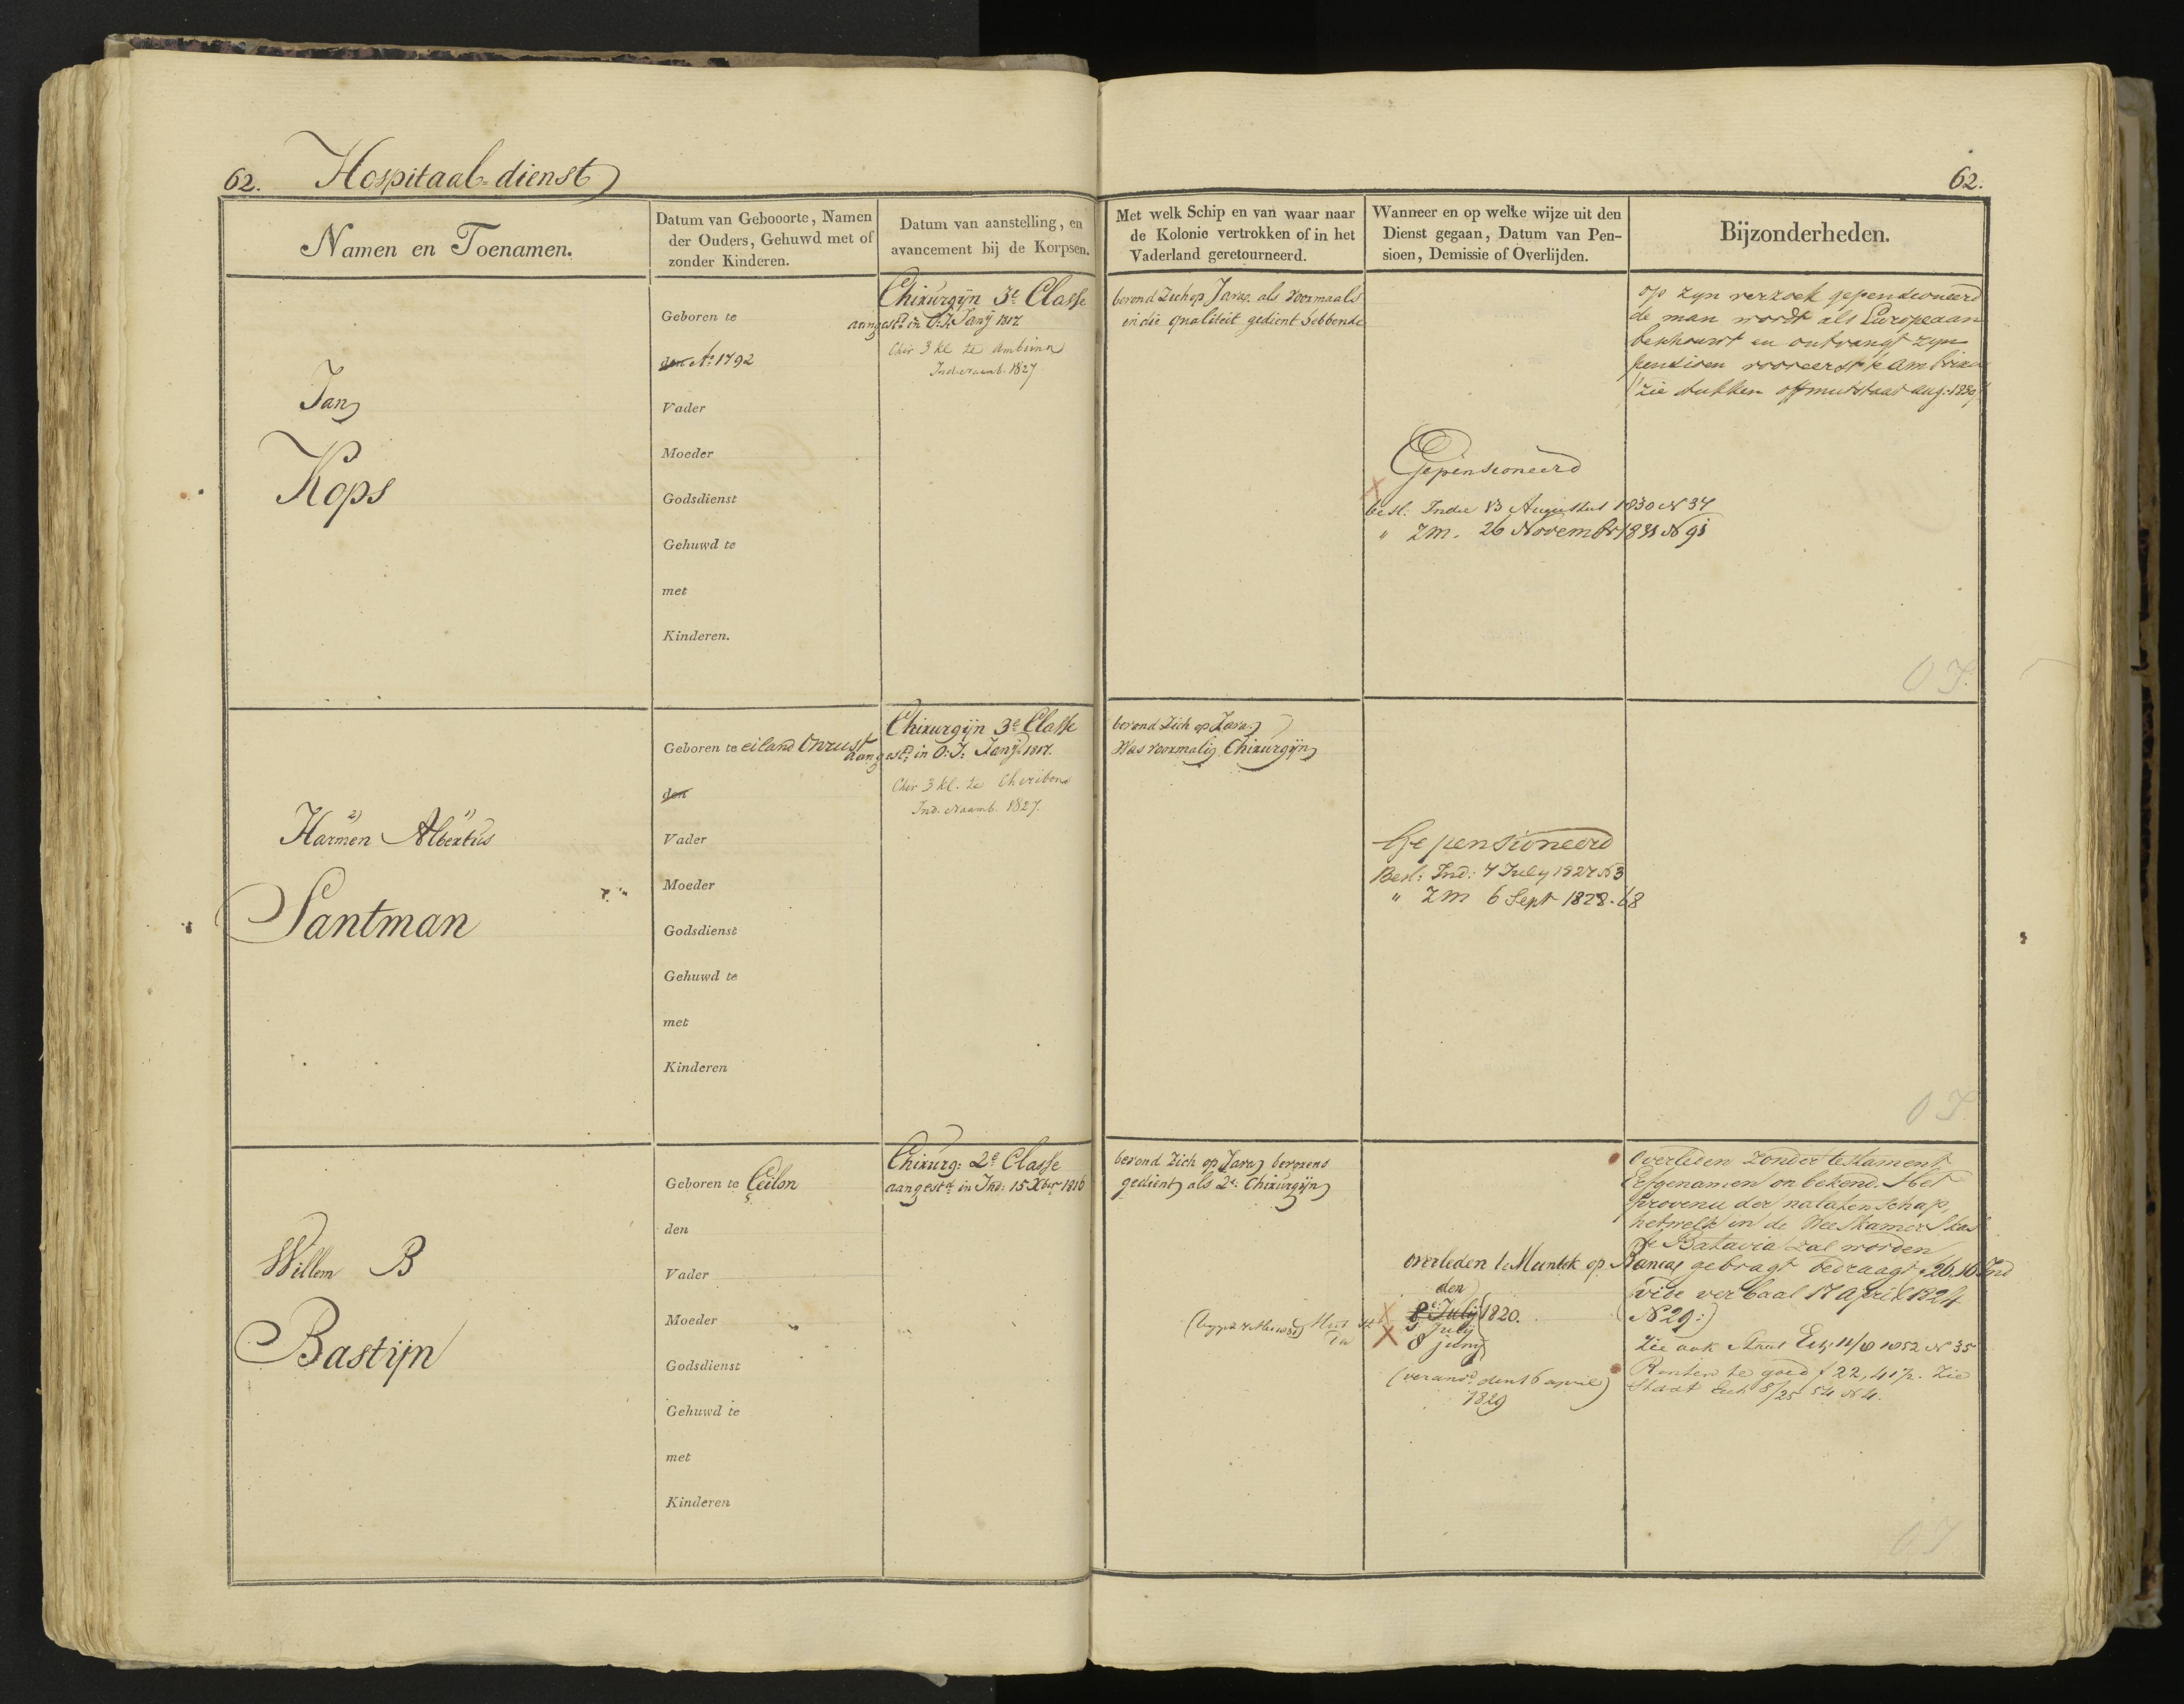 62. Hospitaal=dienst
62.
Namen en Toenamen.
Datum van Gebooorte, Namen
der Ouders, Gehuwd met of
zonder Kinderen.
Datum van aanstelling, en
avancement bij de Korpsen.
Met welk Schip en van waar naar
de Kolonie vertrokken of in het
Vaderland geretourneerd.
Wanneer en op welke wijze uit den
Dienst gegaan, Datum van Pen-
sioen, Demissie of Overlijden.
Bijzonderheden.
Jan
Kops
Geboren te
den Aº 1792
Vader
Moeder
Godsdienst
Gehuwd te
met
Kinderen.
Chirurgijn 3e Classe
aangestd in O: I: Janij 1817.
Chir 3 kl te Amboina
Ind. Naamb. 1827
bevond Zich op Java als voormaals
in die qualiteit gedient hebbende
Gepensioneerd
besl. Indie 13 Augustus 1830 N 37
" ZM. 26 November 1831 N 91
op zyn verzoek gepensioneerd
de man wordt als Europeaan
beschouwt en ontvangt zyn
pensioen vooreerst te Amboina
zie stukken off mutstaat aug: 1830
O I.
Harmen 2) Albertus 1)
Santman
Geboren te eiland Onrust
den
Vader
Moeder
Godsdienst
Gehuwd te
met
Kinderen
Chirurgijn 3e Classe
aangestd in O: I: Janij 1817.
Chir 3 kl. te Cheribon
Ind. Naamb. 1827.
bevond Zich op Java
Was voormalig Chirurgijn
Gepensioneerd
Besl: Ind: 7 July 1827 N 3
" ZM 6 Sept 1828. 68
O I.
Willem B
Bastijn
Geboren te Ceilon
den
Vader
Moeder
Godsdienst
Gehuwd te
met
Kinderen
Chirurg: 2e Classe
aangestd in Ind: 15 Xber 1816
bevond Zich op Java bevorens
gedient als 2e Chirurgijn
overleden te Muntok op Banca
den
8e July 1820.
5 July
8 juny
(verand. den 16 april)
1829
Overleden zonder testament
Erfgenamen onbekend. Het
provenu der nalatenschap,
hetwelk in de Weeskamer
te Batavia zal worden
gebragt bedraagt f 26.16 Ind
vide verbaal 17 April 1824
Nº 29:)
Zie ook Staat Ek 11/6 1852 N 35
Renten te goed f 22,41½. Zie
Staat Ek 8/25 54 N 4.
O I